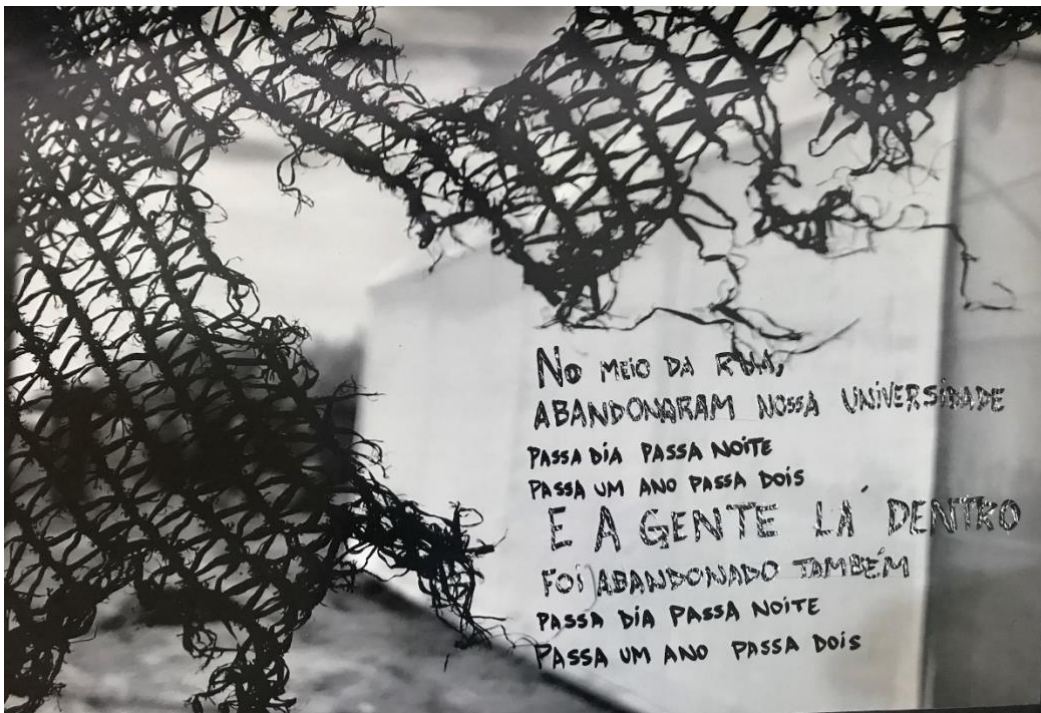 NO MEIO DA RUA,
ABANDONARAM NOSSA UNIVERSIDADE
PASSA DIA PASSA NOITE
PASSA UM ANO PASSA DOIS
E A GENTE LÁ DENTRO
FOI ABANDONADO TAMBÉM
PASSA DIA PASSA NOITE
PASSA UM ANO PASSA DOIS